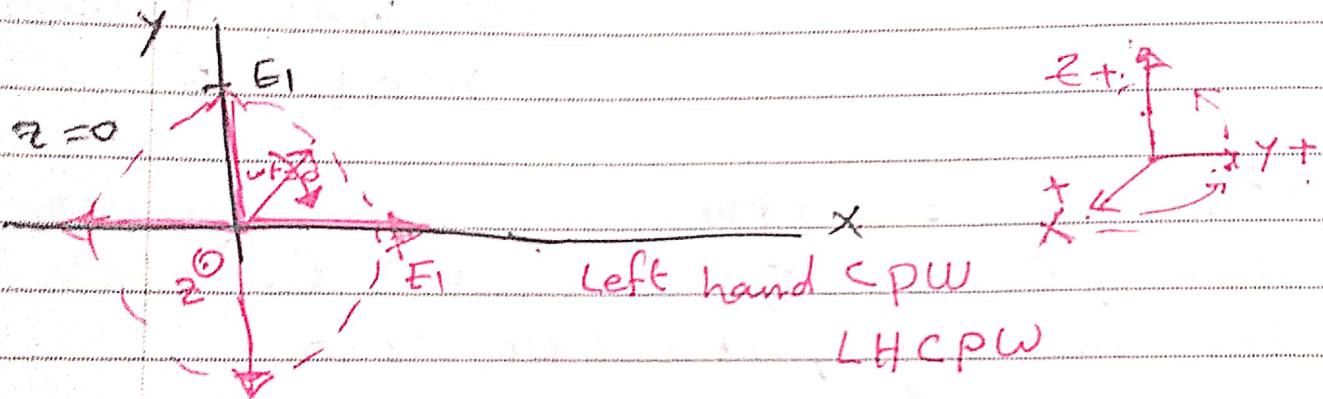 y
E1
z=0
Z+
y+
X
+
X
z
E1
Left hand CPW
LHCPW